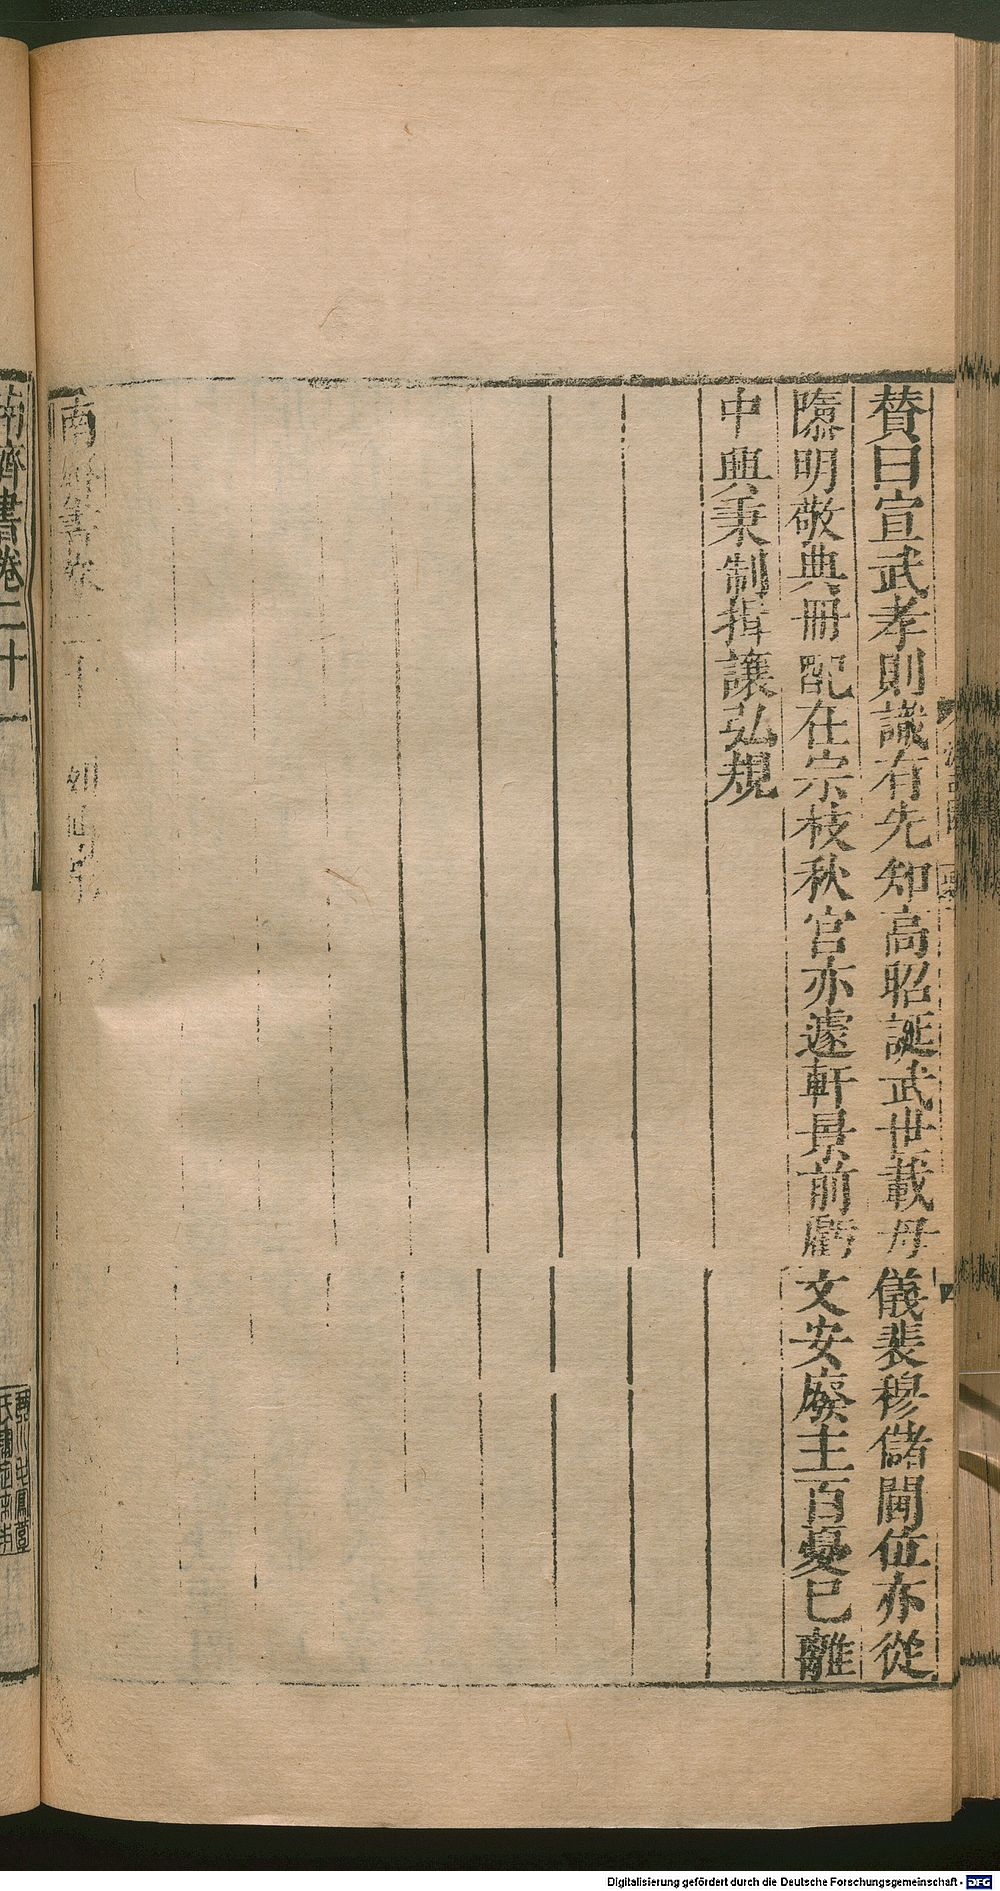 贊曰宣武孝則識有先知高昭誕武世載母儀裴穆儲閫位亦從
隳明敬典冊配在宗枝秋宮亦遽軒景前虧文安廢主百憂已離
中興秉制揖讓弘規
南齊書卷二十
南齊書卷二十一
Digitalisierung gefördert durch die Deutsche Forschungsgemeinschaft - DFG